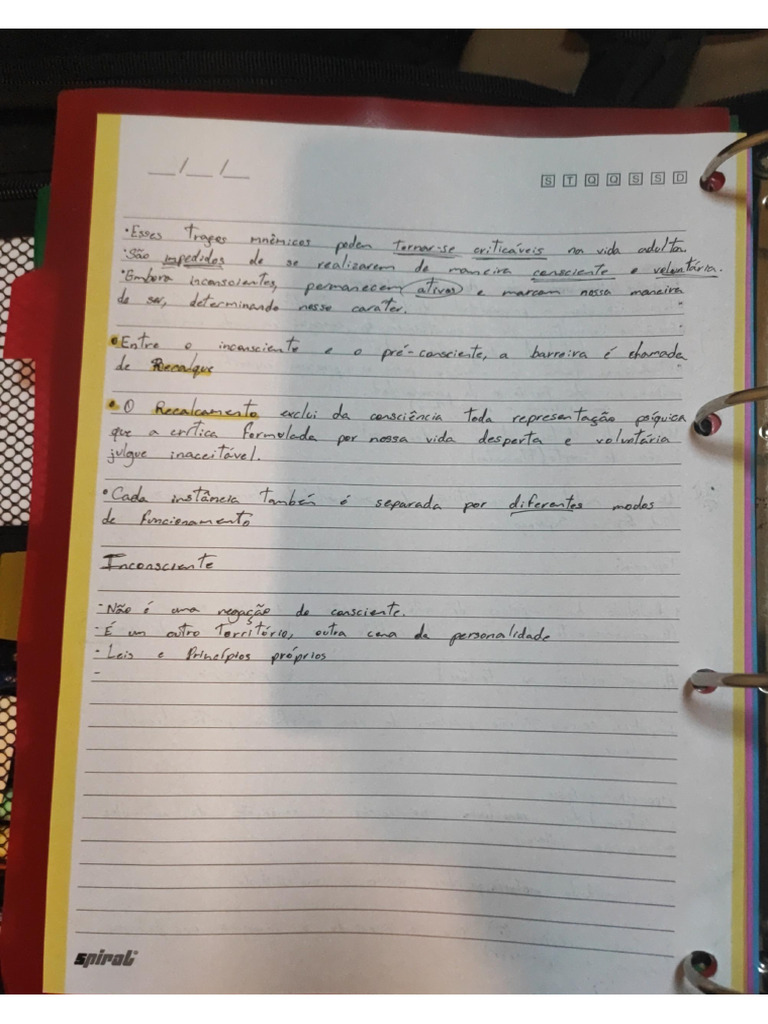 __/__/__
S T Q Q S S D
• Esses traços mnêmicos podem tornar-se criticáveis na vida adulta.
• São impedidos de se realizarem de maneira consciente e voluntária.
• Embora inconscientes, permanecem ativos e marcam nossa maneira
de ser, determinando nosso caráter.
• Entre o inconsciente e o pré-consciente, a barreira é chamada
de Recalque
• O Recalcamento exclui da consciência toda representação psíquica
que a crítica formulada por nossa vida desperta e voluntária
julgue inaceitável.
• Cada instância também é separada por diferentes modos
de funcionamento
Inconsciente
- Não é uma negação do consciente.
- É um outro território, outra cena da personalidade
- Leis e Princípios próprios
-
spiral®